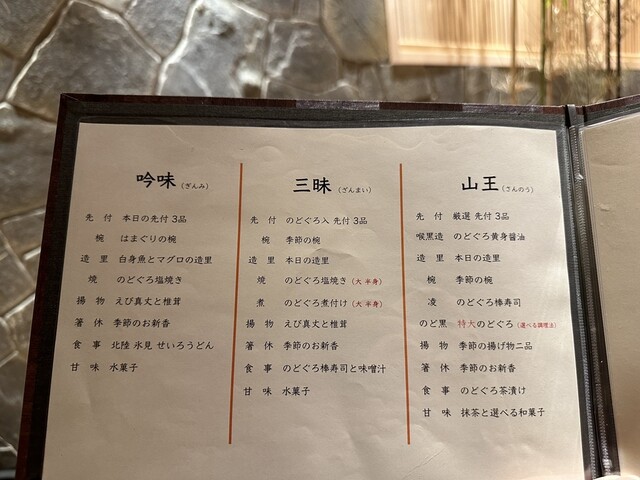 吟味 (ぎんみ)
先 付 本日の先付 3品
椀 はまぐりの椀
造 里 白身魚とマグロの造里
焼 のどぐろ塩焼き
揚 物 えび真丈と椎茸
箸 休 季節のお新香
食 事 北陸 氷見 せいろうどん
甘 味 水菓子
三昧 (ざんまい)
先 付 のどぐろ入 先付 3品
椀 季節の椀
造 里 本日の造里
焼 のどぐろ塩焼き (大 半身)
煮 のどぐろ煮付け (大 半身)
揚 物 えび真丈と椎茸
箸 休 季節のお新香
食 事 のどぐろ棒寿司と味噌汁
甘 味 水菓子
山王 (さんのう)
先 付 厳選 先付 3品
喉黒造 のどぐろ黄身醤油
造 里 本日の造里
椀 季節の椀
凌 のどぐろ棒寿司
のど黒 特大のどぐろ (選べる調理法)
揚 物 季節の揚げ物二品
箸 休 季節のお新香
食 事 のどぐろ茶漬け
甘 味 抹茶と選べる和菓子